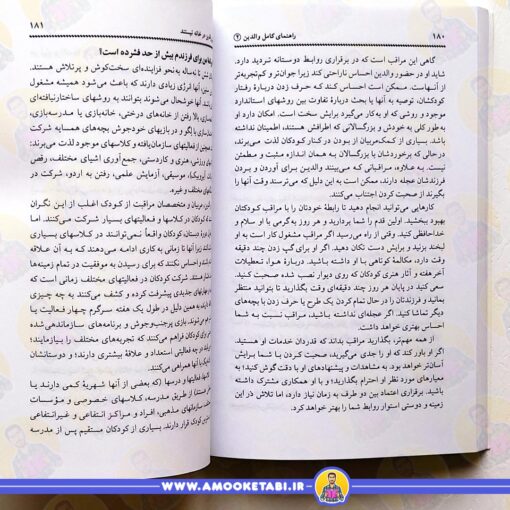 ۱۸۰ راهنمای کامل والدین (۴)
گاهی این مراقب است که در برقراری روابط دوستانه تردید دارد.
شاید او در حضور والدین احساس ناراحتی کند زیرا جوان‌تر و کم‌تجربه‌تر
از آنهاست. ممکن است احساس کند که حرف زدن دربارهٔ رفتار
کودکشان، توصیه به آنها یا بحث دربارهٔ تفاوت بین روشهای استاندارد
موجود و روشی که او به کار می‌گیرد برایش سخت است. امکان دارد او
به طور کلی به خودش و بزرگسالانی که اطرافش هستند، اطمینان نداشته
باشد. بسیاری از کمک‌مربیان از بودن در کنار کودکان لذت می‌برند،
در حالی که برخوردشان با بزرگسالان به همان اندازه مثبت و مطمئن
نیست. به علاوه، مراقبانی که می‌بینند والدین برای آوردن و بردن
فرزندشان عجله دارند، ممکن است به این دلیل که می‌ترسند وقت آنها را
بگیرند از صحبت کردن اجتناب می‌کنند.
کارهایی می‌توانید انجام دهید تا رابطهٔ خودتان را با مراقب کودکتان
بهبود ببخشید. اولین قدم را شما بردارید و هر روز به گرمی با او سلام و
خداحافظی کنید. وقتی از راه می‌رسید اگر مراقب مشغول کار است به او
لبخند بزنید و برایش دست تکان دهید. اگر او برای گپ زدن چند دقیقه
وقت دارد، مکالمهٔ کوتاهی با او داشته باشید. دربارهٔ هوا، تعطیلات
آخر هفته و آثار هنری کودکان که روی دیوار نصب شده صحبت کنید.
سعی کنید در پایان هر روز چند دقیقه‌ای وقت بگذارید تا بتوانید منتظر
بمانید و فرزندتان را در حال تمام کردن یک طرح یا حرف زدن با بچه‌های
دیگر تماشا کنید. اگر عجله‌ای نداشته باشید، مراقب نسبت به شما
احساس بهتری خواهد داشت.
از همه مهم‌تر، بگذارید مراقب بداند که قدردان خدمات او هستید.
اگر او باور کند که او را جدی می‌گیرید، صحبت کردن با شما برایش
آسان‌تر خواهد بود. به مشاهدات و پیشنهادهای او با دقت گوش کنید؛ به
معیارهای مورد نظر او احترام بگذارید؛ و با او همکاری مشترک داشته
باشید. برقراری اعتماد بین دو طرف به زمان نیاز دارد، اما تلاش در این
زمینه و دوستی استوار روابط شما را بهتر خواهد کرد.
در خانه نیستند ۱۸۱
برای فرزندم بیش از حد فشرده است؟
شش تا نه‌ساله به نحو فزاینده‌ای سخت‌کوش و پرتلاش هستند.
آنها انرژی زیادی دارند که باعث می‌شود همیشه مشغول
خوشحال می‌شوند بتوانند به روشهای ساختارنیافته‌ای
بازی، بالا رفتن از خانه‌های درختی، خانه‌بازی یا مدرسه‌بازی،
بازی یا اگر و بازیهای خودجوش بچه‌های همسایه شرکت
از انجام فعالیتهای سازمان‌یافته و کلاسهای موجود لذت می‌برند؛
ورزشی، هنری و کاردستی، جمع‌آوری اشیای مختلف، رقص
آیروبیک)، موسیقی، آزمایش علمی، رفتن به اردو، شرکت در
مختلف و غیره.
مربیان و متخصصان مراقبت از کودک اغلب از این نگران
که کودکان در کلاسها و فعالیتهای بسیار شرکت می‌کنند. اما
دبستان کودکان واقعاً نمی‌توانند در کلاسهای بسیاری
کنند زیرا آنها تا زمانی به کاری ادامه می‌دهند که به آن علاقه
احساس نکنند که برای رسیدن به موفقیت در تمام زمینه‌ها
هستند. شرکت کودکان در فعالیتهای مختلف زمانی است که
مهارتهای جدیدی پیشرفت کرده و کشف می‌کنند به چه چیزی
دارند. به همین دلیل در طول یک هفته سرگرم چهار فعالیت یا
می‌شوند. بازی پرجنب‌وجوش و برنامه‌های سازماندهی شده
برای کودکان فراهم می‌کنند که تجربه‌های مختلف را بیازمایند؛
در چه فعالیتی استعداد و علاقهٔ بیشتری دارند؛ و دوستانشان
با آنها همراهی می‌کنند.
فعالیتها و درسها (که بعضی از آنها شهریهٔ کمی دارند یا
هستند) از طریق مدرسه، کلاسهای خصوصی و مؤسسات
سازمانهای مذهبی، افراد و مراکز انتفاعی و غیرانتفاعی
کودک قرار دارند. بسیاری از کودکان مستقیم پس از مدرسه
WWW.AMOOKETABI.IR